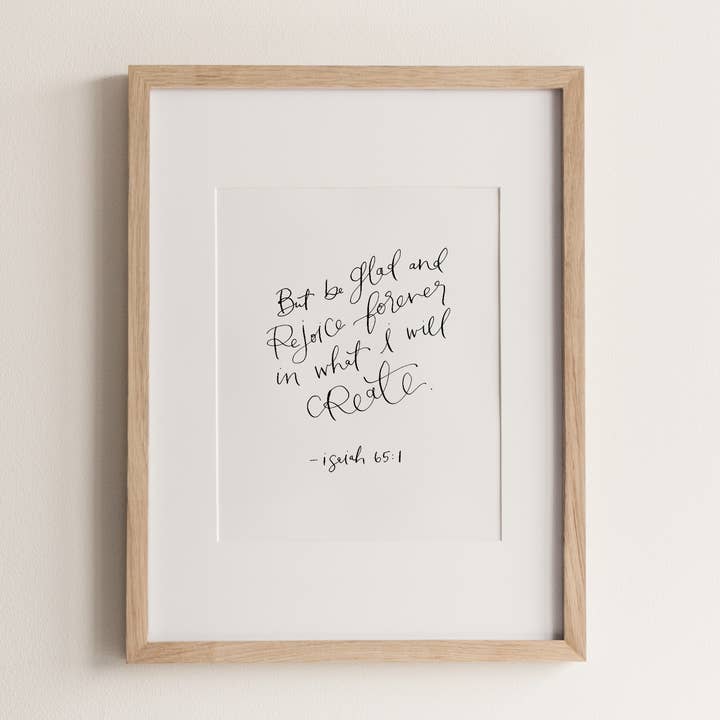 But be glad and
Rejoice forever
in what I will
create.
- isaiah 65:1